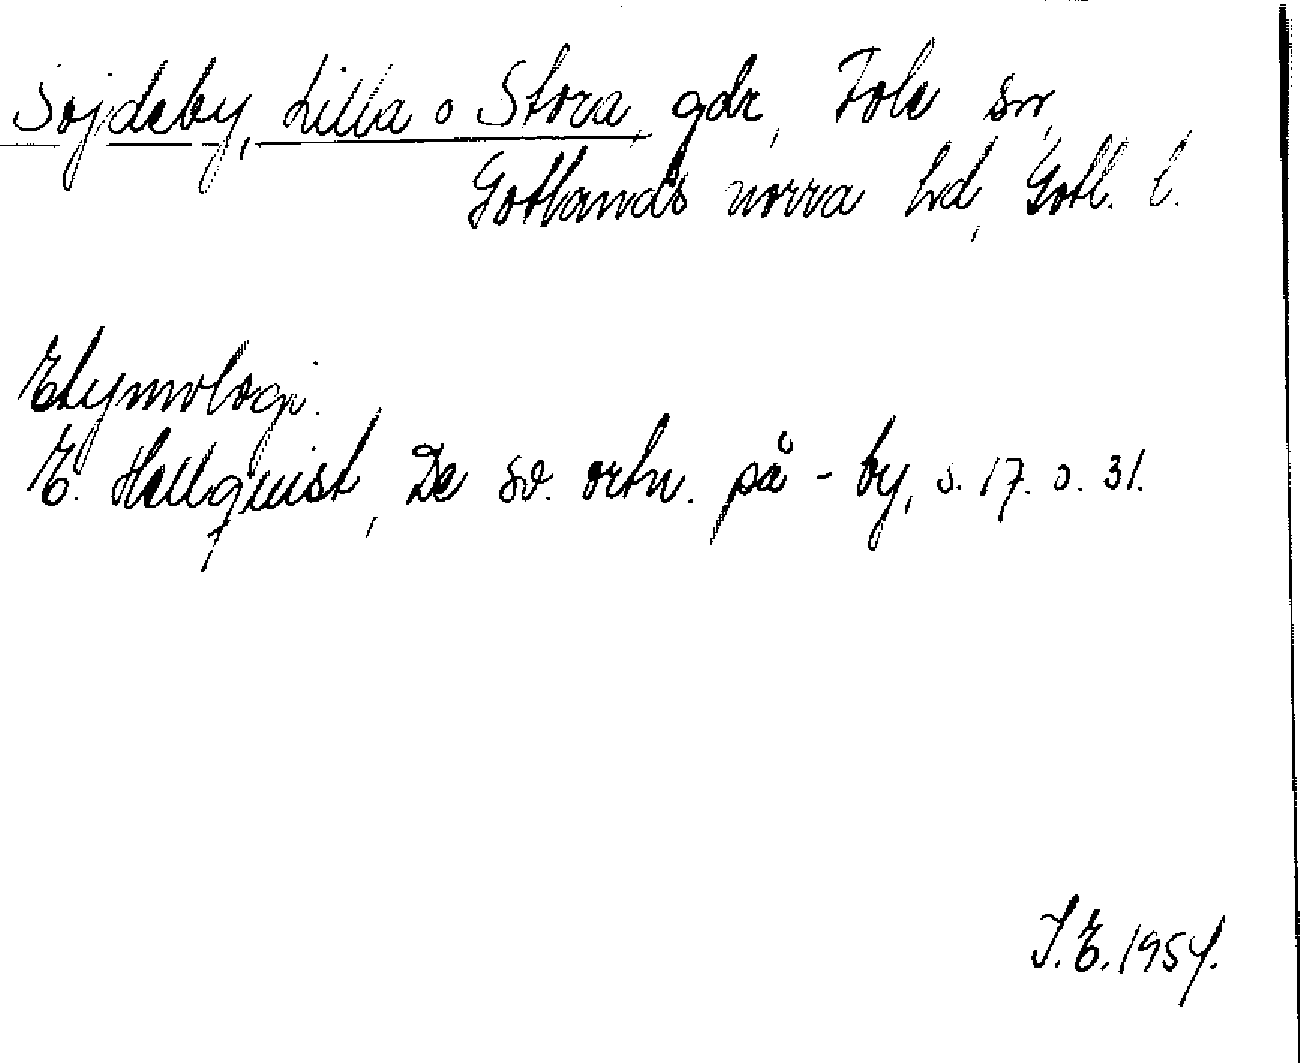 Sojdeby, Lilla o Stora, gdr, Fole sn,
Gotlands norra hd, Gotl. l.
Etymologi.
E. Hellquist, De sv. ortn. på -by, s. 17. o. 31.
I.E. 1954.